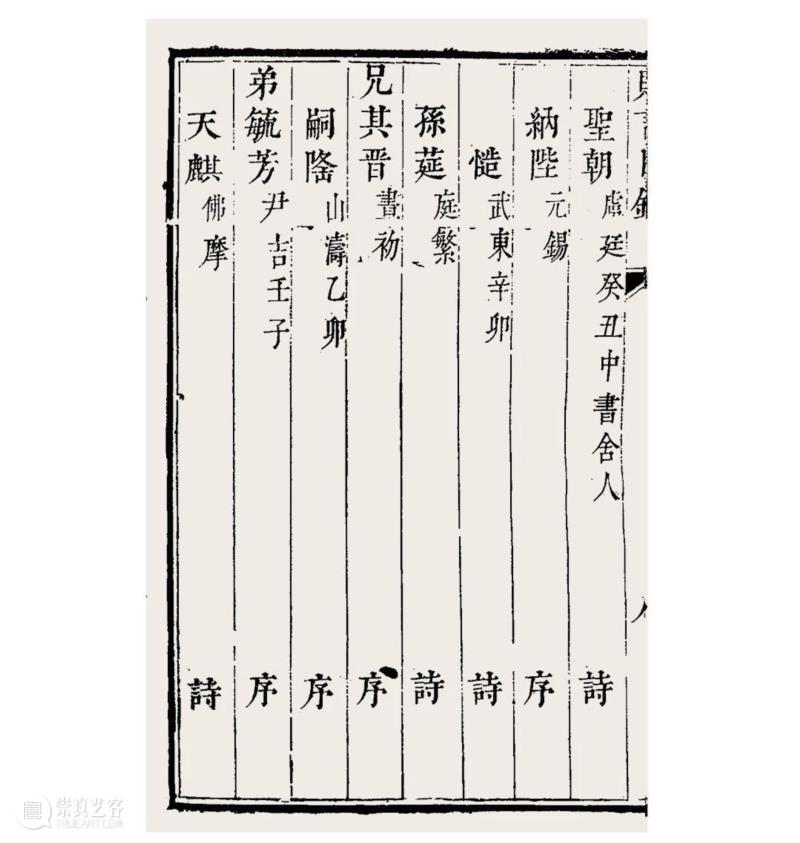 聖朝 虛廷癸丑中書舍人 詩
納陛 元錫 序
慥 武東辛卯 詩
孫莚 庭繁 詩
兄其晋 書初 序
嗣隆 山濤乙卯 序
弟毓芳 尹吉壬子 序
天麒 佛摩 詩
崇真艺客
TRUEART.COM